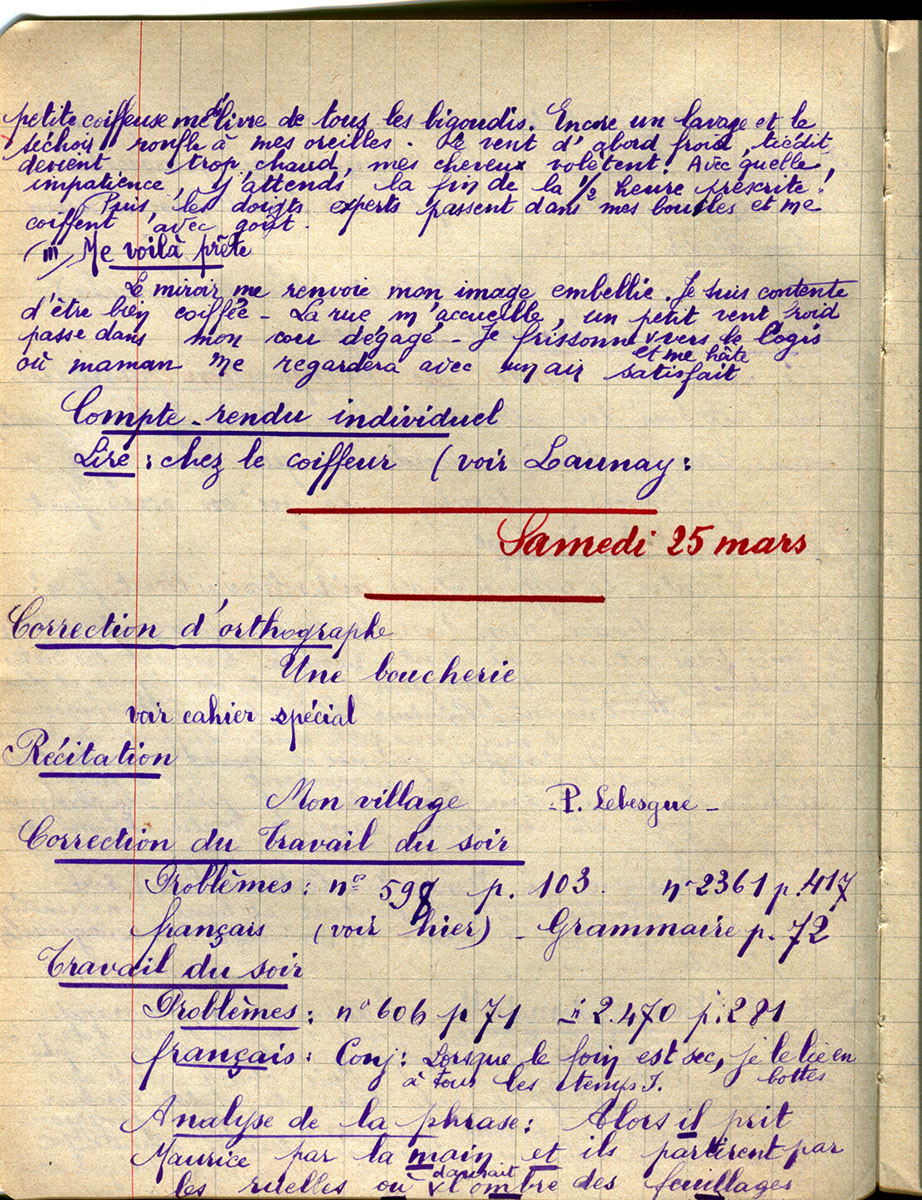 petite coiffeuse me délivre de tous les bigoudis. Encore un lavage et le
séchoir ronfle à mes oreilles. Le vent d'abord froid, tiédit
devient trop chaud, mes cheveux volètent. Avec quelle
impatience, j'attends la fin de la 1/2 heure prescrite.
Puis, les doigts experts passent dans mes boucles et me
coiffent avec goût.
III Me voilà prête
Le miroir me renvoie mon image embellie. Je suis contente
d'être bien coiffée - La rue m'accueille, un petit vent froid
passe dans mon cou dégagé - Je frissonne vers le logis
et me hâte
où maman me regardera avec un air satisfait
Compte-rendu individuel
Lire : chez le coiffeur (voir Launay :
Samedi 25 mars
Correction d'orthographe
Une boucherie
voir cahier spécial
Récitation
Mon village - P. Lebesgue -
Correction du Travail du soir
Problèmes : no 598 p. 103. no 2361 p. 417
français (voir hier) - Grammaire p. 72
Travail du soir
Problèmes : no 606 p 71 2.470 p. 281
français : Conj : Lorsque le foin est sec, je le lie en
à tous les temps. bottes
Analyse de la phrase : Alors il prit
Maurice par la main et ils partirent par
dansait
les ruelles où l'ombre des feuillages